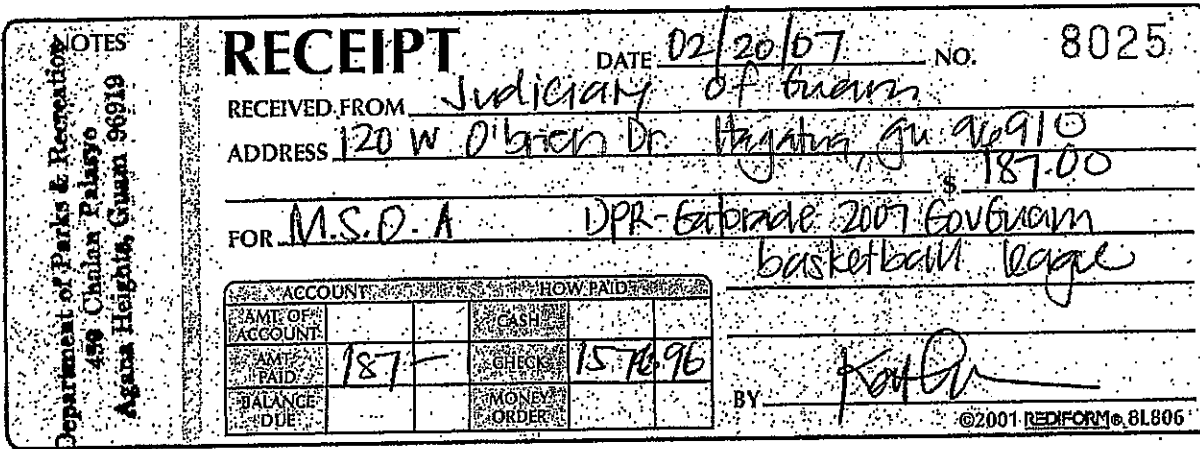 NOTES
Department of Parks & Recreation
490 Chalan Palasyo
Agana Heights, Guam 96919
RECEIPT DATE 02/20/07 NO. 8025
RECEIVED FROM Judiciary of Guam
ADDRESS 120 W O'brien Dr. Hagatna, gu 96910
$ 187.00
FOR M.S.O.A DPR-Gatorade 2007 GovGuam
basketball league
ACCOUNT HOW PAID
AMT. OF ACCOUNT CASH
AMT. PAID 187- CHECK
BALANCE DUE MONEY ORDER
BY
©2001 REDIFORM® 8L806